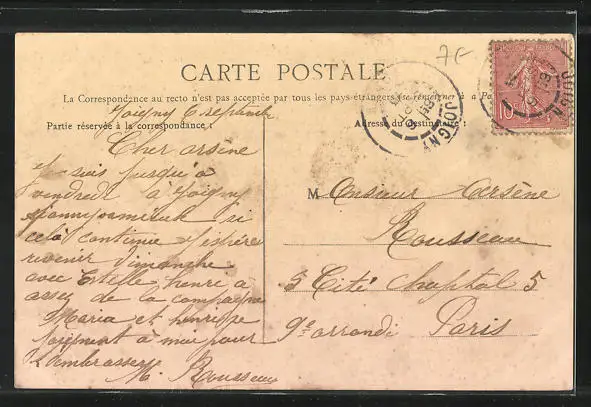 7E
CARTE POSTALE
La Correspondance au recto n'est pas acceptée par tous les pays étrangers (se renseigner à
Joigny 6 septembre
Partie réservée à la correspondance :
Adresse du Destinataire :
JOIGNY
10
Cher arsène
Je suis jusqu'à
vendredi à Joigny
si
cela continue J'espère
revenir Dimanche
avec Estelle henri a
assez de la campagne
Maria et
joignent à moi pour
t'embrasser
M. Rousseau
Monsieur Arsène
Rousseau
5 Cité Chaptal 5
9e arrondi Paris